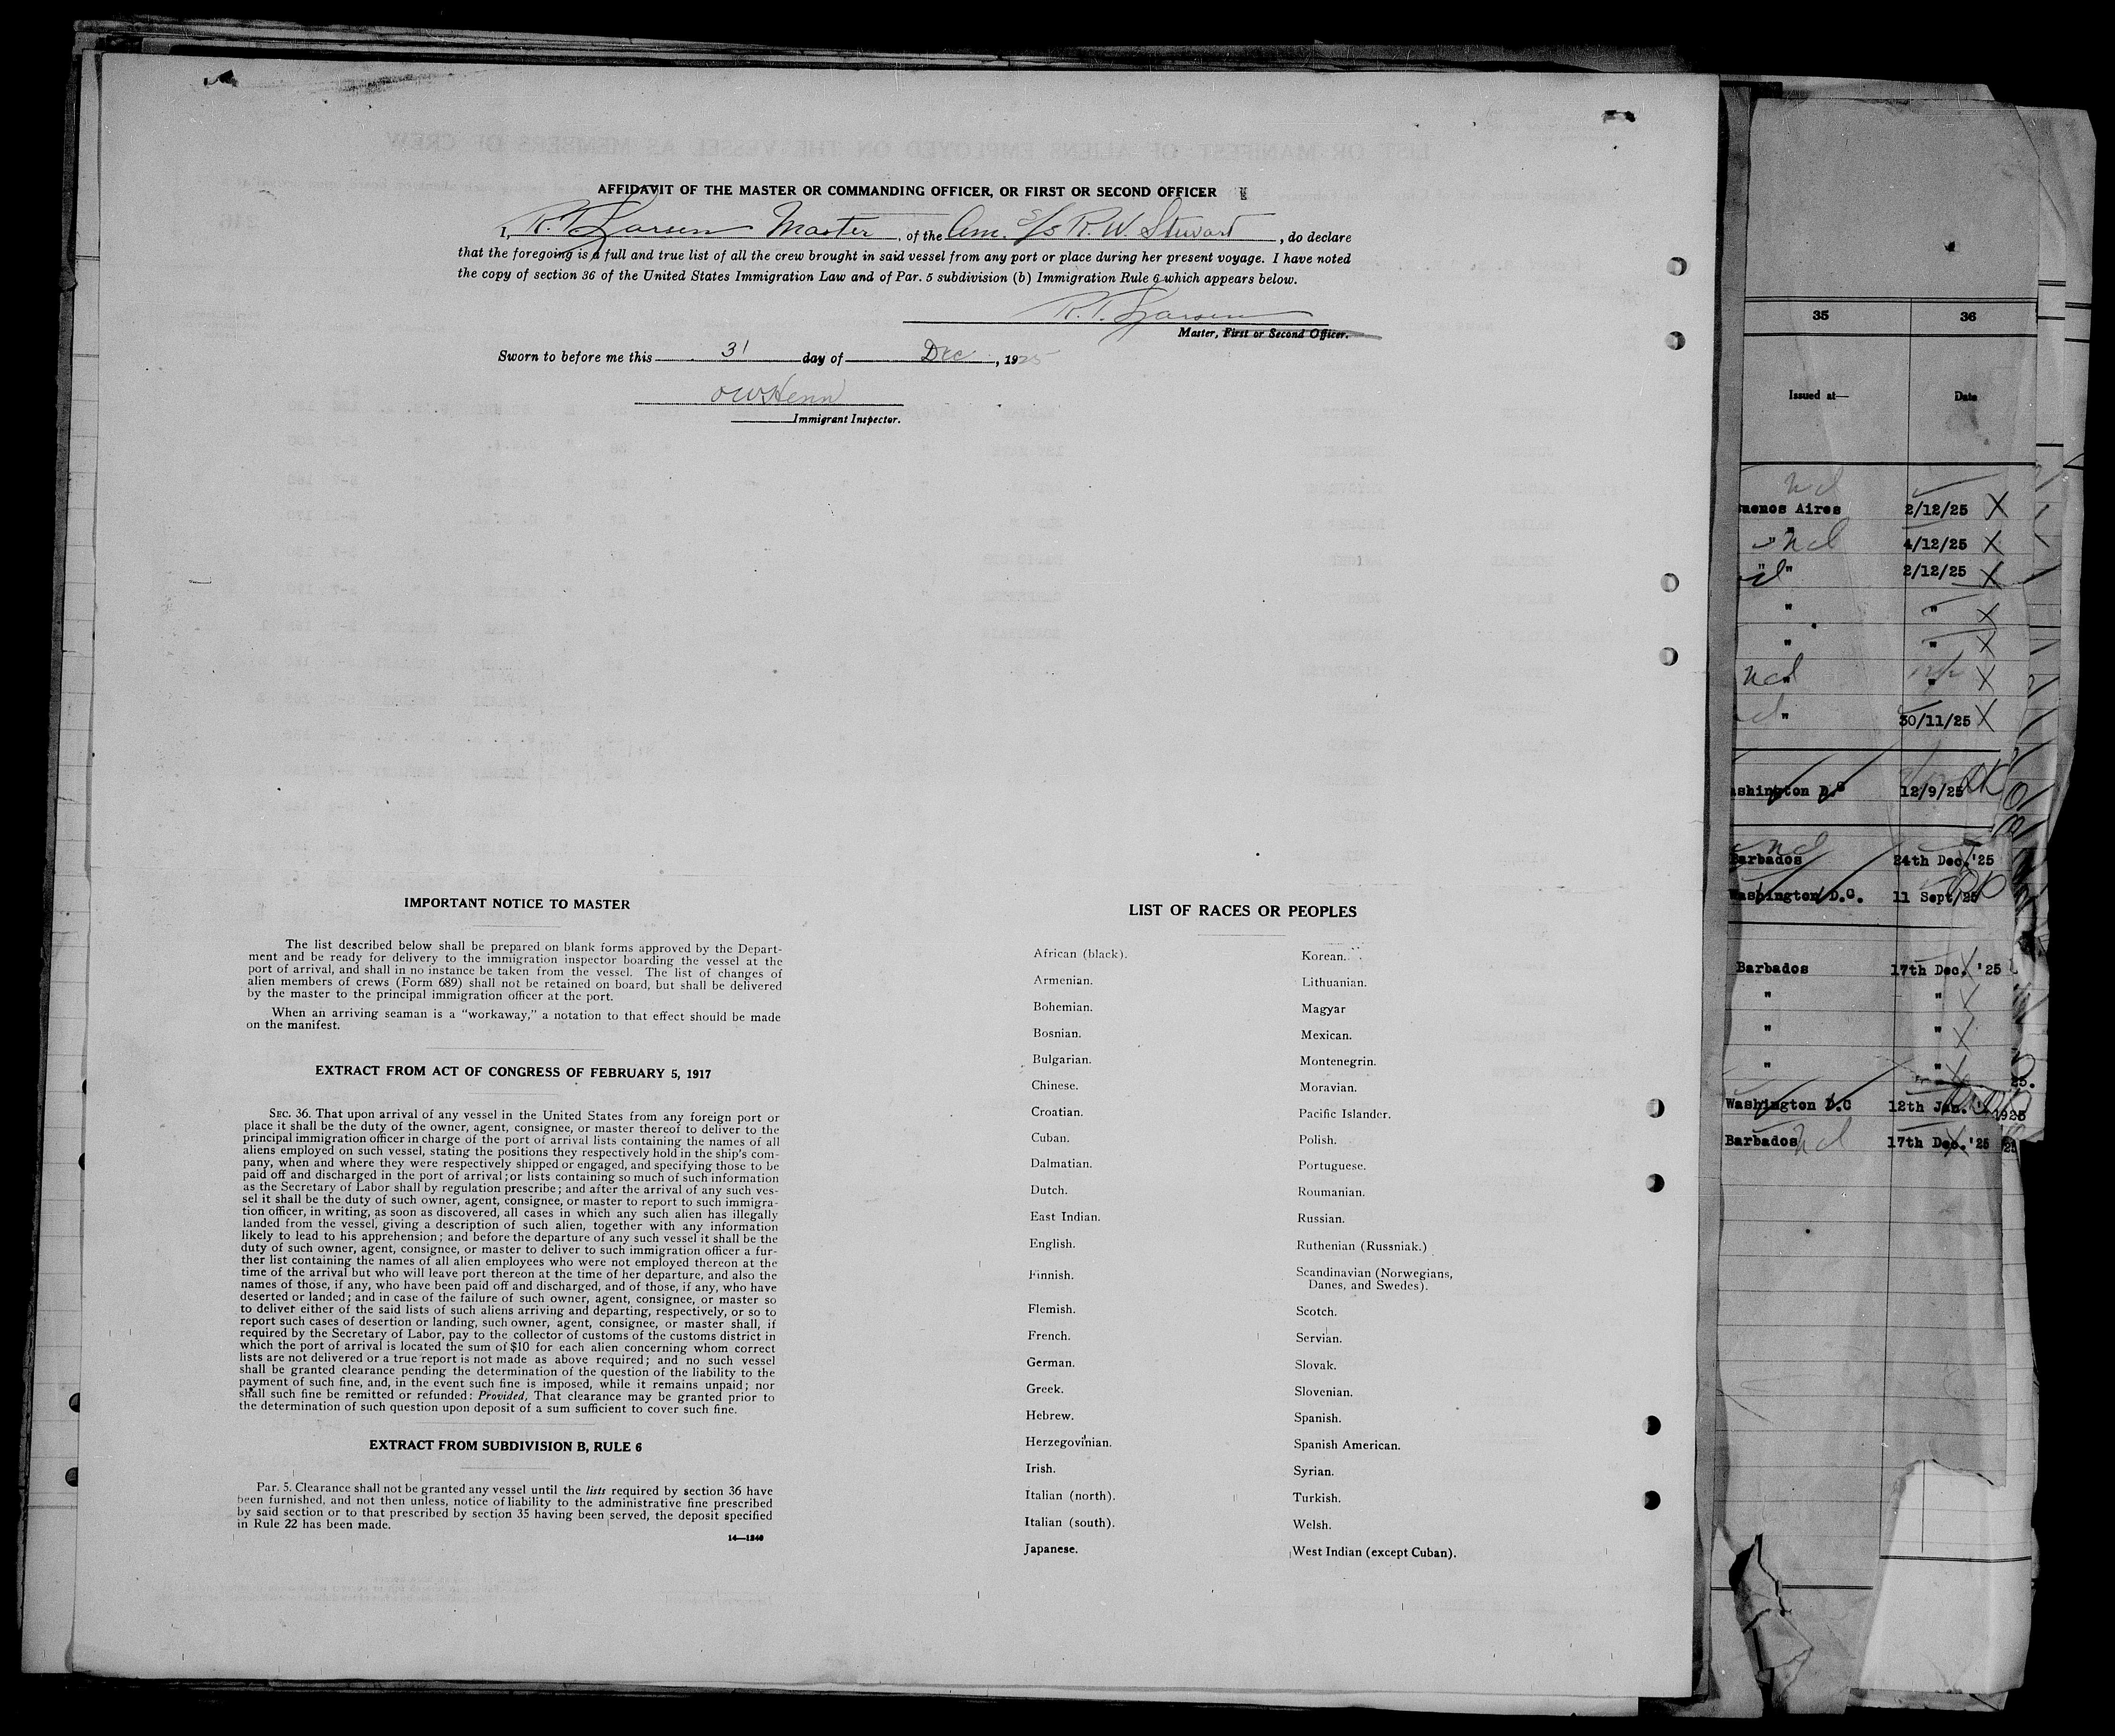 AFFIDAVIT OF THE MASTER OR COMMANDING OFFICER, OR FIRST OR SECOND OFFICER
I, R. T. Larsen Master, of the Am. S/S R. W. Stewart, do declare
that the foregoing is a full and true list of all the crew brought in said vessel from any port or place during her present voyage. I have noted
the copy of section 36 of the United States Immigration Law and of Par. 5 subdivision (b) Immigration Rule 6 which appears below.
R. T. Larsen
Master, First or Second Officer.
Sworn to before me this 31 day of Dec, 1925
O W Henn
Immigrant Inspector.
IMPORTANT NOTICE TO MASTER
The list described below shall be prepared on blank forms approved by the Depart-
ment and be ready for delivery to the immigration inspector boarding the vessel at the
port of arrival, and shall in no instance be taken from the vessel. The list of changes of
alien members of crews (Form 689) shall not be retained on board, but shall be delivered
by the master to the principal immigration officer at the port.
When an arriving seaman is a "workaway," a notation to that effect should be made
on the manifest.
EXTRACT FROM ACT OF CONGRESS OF FEBRUARY 5, 1917
SEC. 36. That upon arrival of any vessel in the United States from any foreign port or
place it shall be the duty of the owner, agent, consignee, or master thereof to deliver to the
principal immigration officer in charge of the port of arrival lists containing the names of all
aliens employed on such vessel, stating the positions they respectively hold in the ship's com-
pany, when and where they were respectively shipped or engaged, and specifying those to be
paid off and discharged in the port of arrival; or lists containing so much of such information
as the Secretary of Labor shall by regulation prescribe; and after the arrival of any such ves-
sel it shall be the duty of such owner, agent, consignee, or master to report to such immigra-
tion officer, in writing, as soon as discovered, all cases in which any such alien has illegally
landed from the vessel, giving a description of such alien, together with any information
likely to lead to his apprehension; and before the departure of any such vessel it shall be the
duty of such owner, agent, consignee, or master to deliver to such immigration officer a fur-
ther list containing the names of all alien employees who were not employed thereon at the
time of the arrival but who will leave port thereon at the time of her departure, and also the
names of those, if any, who have been paid off and discharged, and of those, if any, who have
deserted or landed; and in case of the failure of such owner, agent, consignee, or master so
to deliver either of the said lists of such aliens arriving and departing, respectively, or so to
report such cases of desertion or landing, such owner, agent, consignee, or master shall, if
required by the Secretary of Labor, pay to the collector of customs of the customs district in
which the port of arrival is located the sum of $10 for each alien concerning whom correct
lists are not delivered or a true report is not made as above required; and no such vessel
shall be granted clearance pending the determination of the question of the liability to the
payment of such fine, and, in the event such fine is imposed, while it remains unpaid; nor
shall such fine be remitted or refunded: Provided, That clearance may be granted prior to
the determination of such question upon deposit of a sum sufficient to cover such fine.
EXTRACT FROM SUBDIVISION B, RULE 6
Par. 5. Clearance shall not be granted any vessel until the lists required by section 36 have
been furnished, and not then unless, notice of liability to the administrative fine prescribed
by said section or to that prescribed by section 35 having been served, the deposit specified
in Rule 22 has been made.
14—1240
LIST OF RACES OR PEOPLES
African (black).
Armenian.
Bohemian.
Bosnian.
Bulgarian.
Chinese.
Croatian.
Cuban.
Dalmatian.
Dutch.
East Indian.
English.
Finnish.
Flemish.
French.
German.
Greek.
Hebrew.
Herzegovinian.
Irish.
Italian (north).
Italian (south).
Japanese.
Korean.
Lithuanian.
Magyar
Mexican.
Montenegrin.
Moravian.
Pacific Islander.
Polish.
Portuguese.
Roumanian.
Russian.
Ruthenian (Russniak.)
Scandinavian (Norwegians,
Danes, and Swedes).
Scotch.
Servian.
Slovak.
Slovenian.
Spanish.
Spanish American.
Syrian.
Turkish.
Welsh.
West Indian (except Cuban).
35 36
Issued at— Date
Buenos Aires 2/12/25 X
" 4/12/25 X
" " 2/12/25 X
" " X
" " X
" " X
" 30/11/25 X
ashington D.C 12/9/25 OK
Barbados 24th Dec. '25
Washington D.C. 11 Sept/25
Barbados 17th Dec. '25
" "
" "
" "
Washington D.C 12th Jan. 1925
Barbados 17th Dec. '25